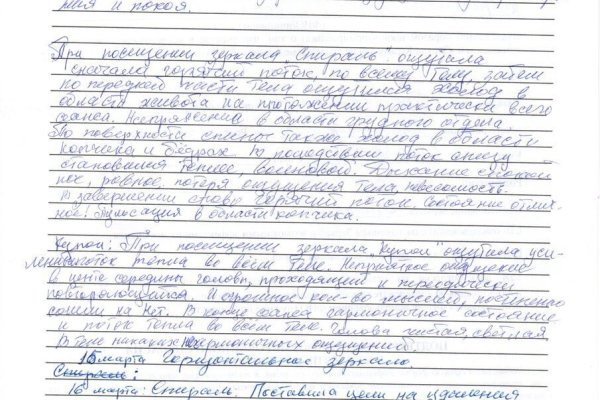 мия и покоя.
При посещении зеркала "Спираль" ощутила
сначала горячий поток, по всему телу, затем
по передней части тела ощущался холод в
области живота на протяжении практически всего
сеанса. Напряжение в области грудного отдела.
По поверхности спины также холод в области
копчика и бёдрах. В последствии поток снизу
становился теплее, волновой. Дыхание спокой
ное, ровное, потеря ощущения тела, невесомость.
В завершении снова горячий поток. Состояние отлич-
ное. Пульсация в области копчика.
Купол: При посещении зеркала "Купол" ощутила уси-
ление поток тепла во всём теле. Неприятное ощущение
в центе середины головы, проходящий и периодически
повторяющийся. И огромное кол-во мыслей, постепенно
сошли на нет. В конце сеанса гармоничное состояние
и поток тепла во всём теле. Голова чистая, светлая,
в теле никаких не гармоничных ощущений.
15 марта Горизонтальное зеркало.
Спираль:
16 марта: Спираль. Поставила цели на удаления